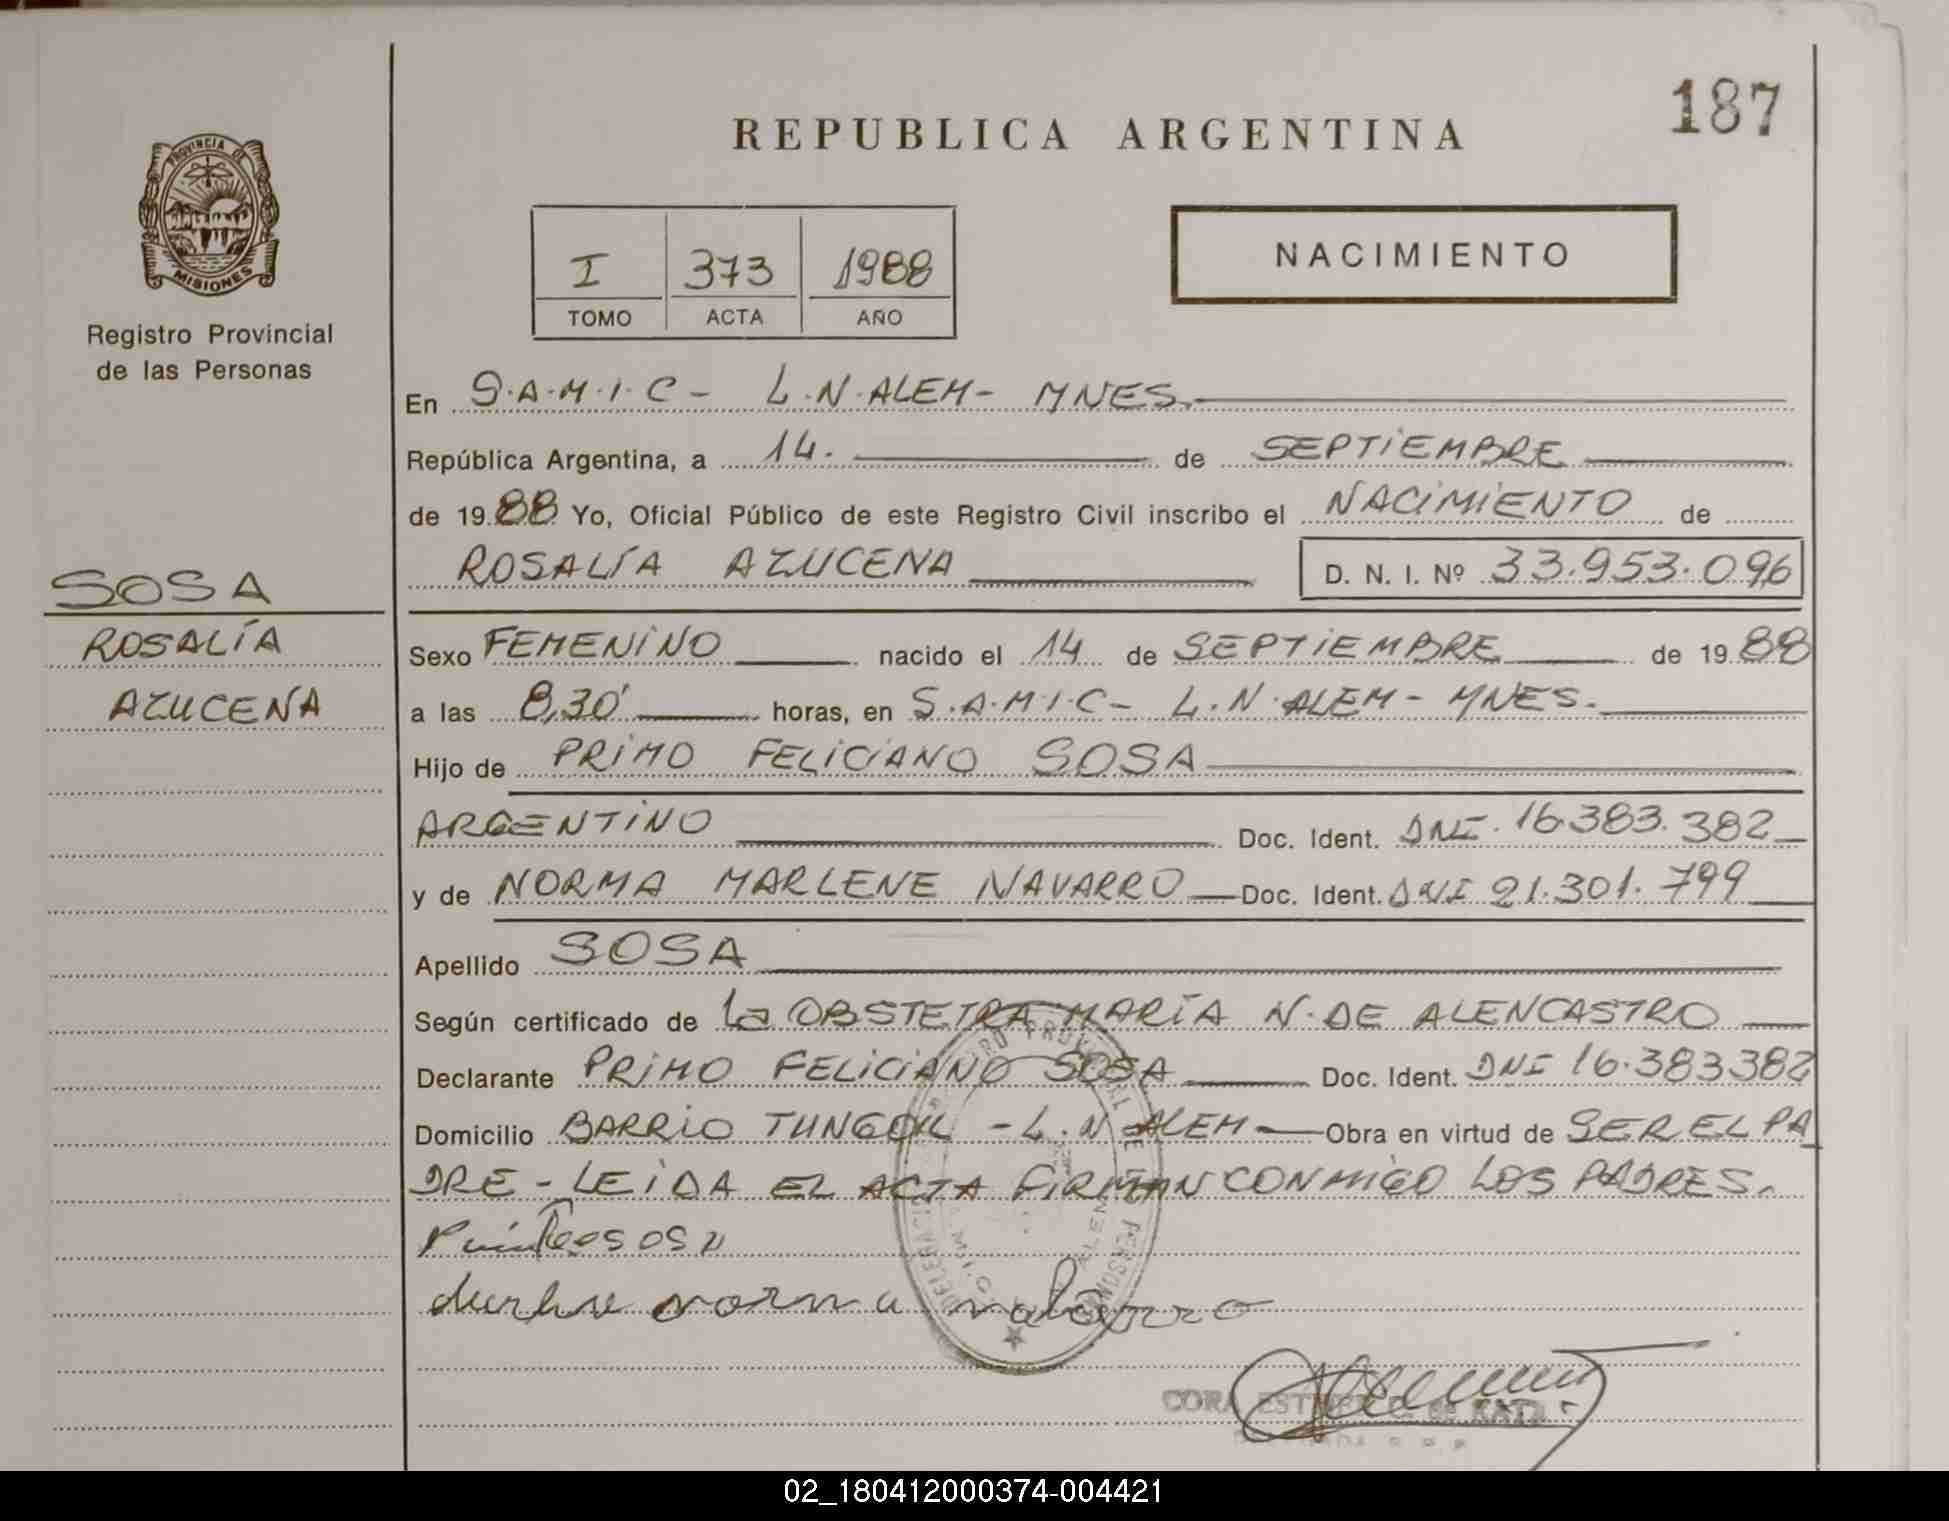 187
REPUBLICA ARGENTINA
PROVINCIA DE
MISIONES
Registro Provincial
de las Personas
I 373 1988
TOMO ACTA AÑO
NACIMIENTO
En S.A.M.I.C- L.N.ALEM- MNES.
República Argentina, a 14. de SEPTIEMBRE
de 1988 Yo, Oficial Público de este Registro Civil inscribo el NACIMIENTO de
ROSALÍA AZUCENA D. N. I. Nº 33.953.096
SOSA
ROSALÍA
AZUCENA
Sexo FEMENINO nacido el 14 de SEPTIEMBRE de 1988
a las 8,30' horas, en S.A.M.I.C- L.N.ALEM- MNES.
Hijo de PRIMO FELICIANO SOSA
ARGENTINO Doc. Ident. DNI. 16.383.382
y de NORMA MARLENE NAVARRO Doc. Ident. DNI 21.301.799
Apellido SOSA
Según certificado de la OBSTETRA MARÍA N. DE ALENCASTRO
Declarante PRIMO FELICIANO SOSA Doc. Ident. DNI 16.383382
Domicilio BARRIO TUNGOIL - L.N ALEM Obra en virtud de SER EL PA
DRE - LEIDA EL ACTA FIRMAN CONMIGO LOS PADRES.
norma
CORA
02_180412000374-004421